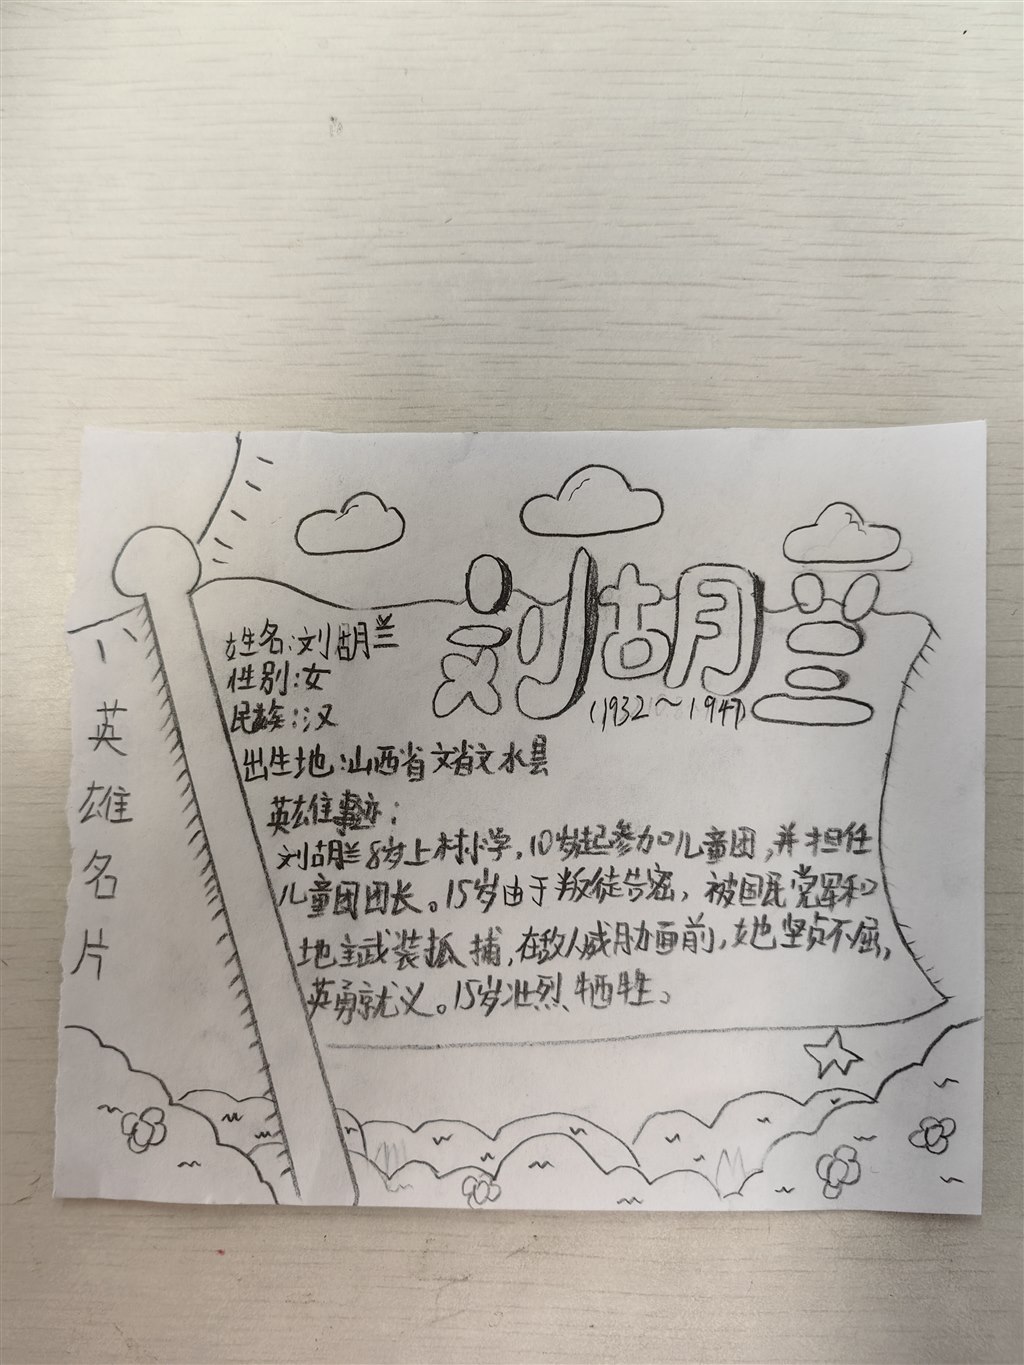 刘胡兰
(1932～1947)
英雄名片
姓名:刘胡兰
性别:女
民族:汉
出生地:山西省文省文水县
英雄事迹:
刘胡兰8岁上村小学,10岁起参加儿童团,并担任
儿童团团长。15岁由于叛徒告密,被国民党军和
地主武装抓捕,在敌人威胁面前,她坚贞不屈,
英勇就义。15岁壮烈牺牲。